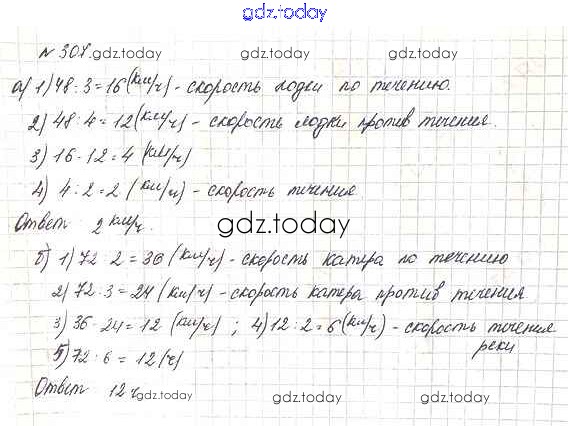 gdz.today
№ 307.gdz.today gdz.today gdz.today
а) 1) 48 : 3 = 16 (км/ч) - скорость лодки по течению.
2) 48 : 4 = 12 (км/ч) - скорость лодки против течения.
3) 16 - 12 = 4 (км/ч)
4) 4 : 2 = 2 (км/ч) - скорость течения
Ответ 2 км/ч.
gdz.today
б) 1) 72 : 2 = 36 (км/ч) - скорость катера по течению
2) 72 : 3 = 24 (км/ч) - скорость катера против течения
3) 36 - 24 = 12 (км/ч) ; 4) 12 : 2 = 6 (км/ч) - скорость течения
реки
5) 72 : 6 = 12 (ч)
Ответ 12 ч.
gdz.today gdz.today gdz.today